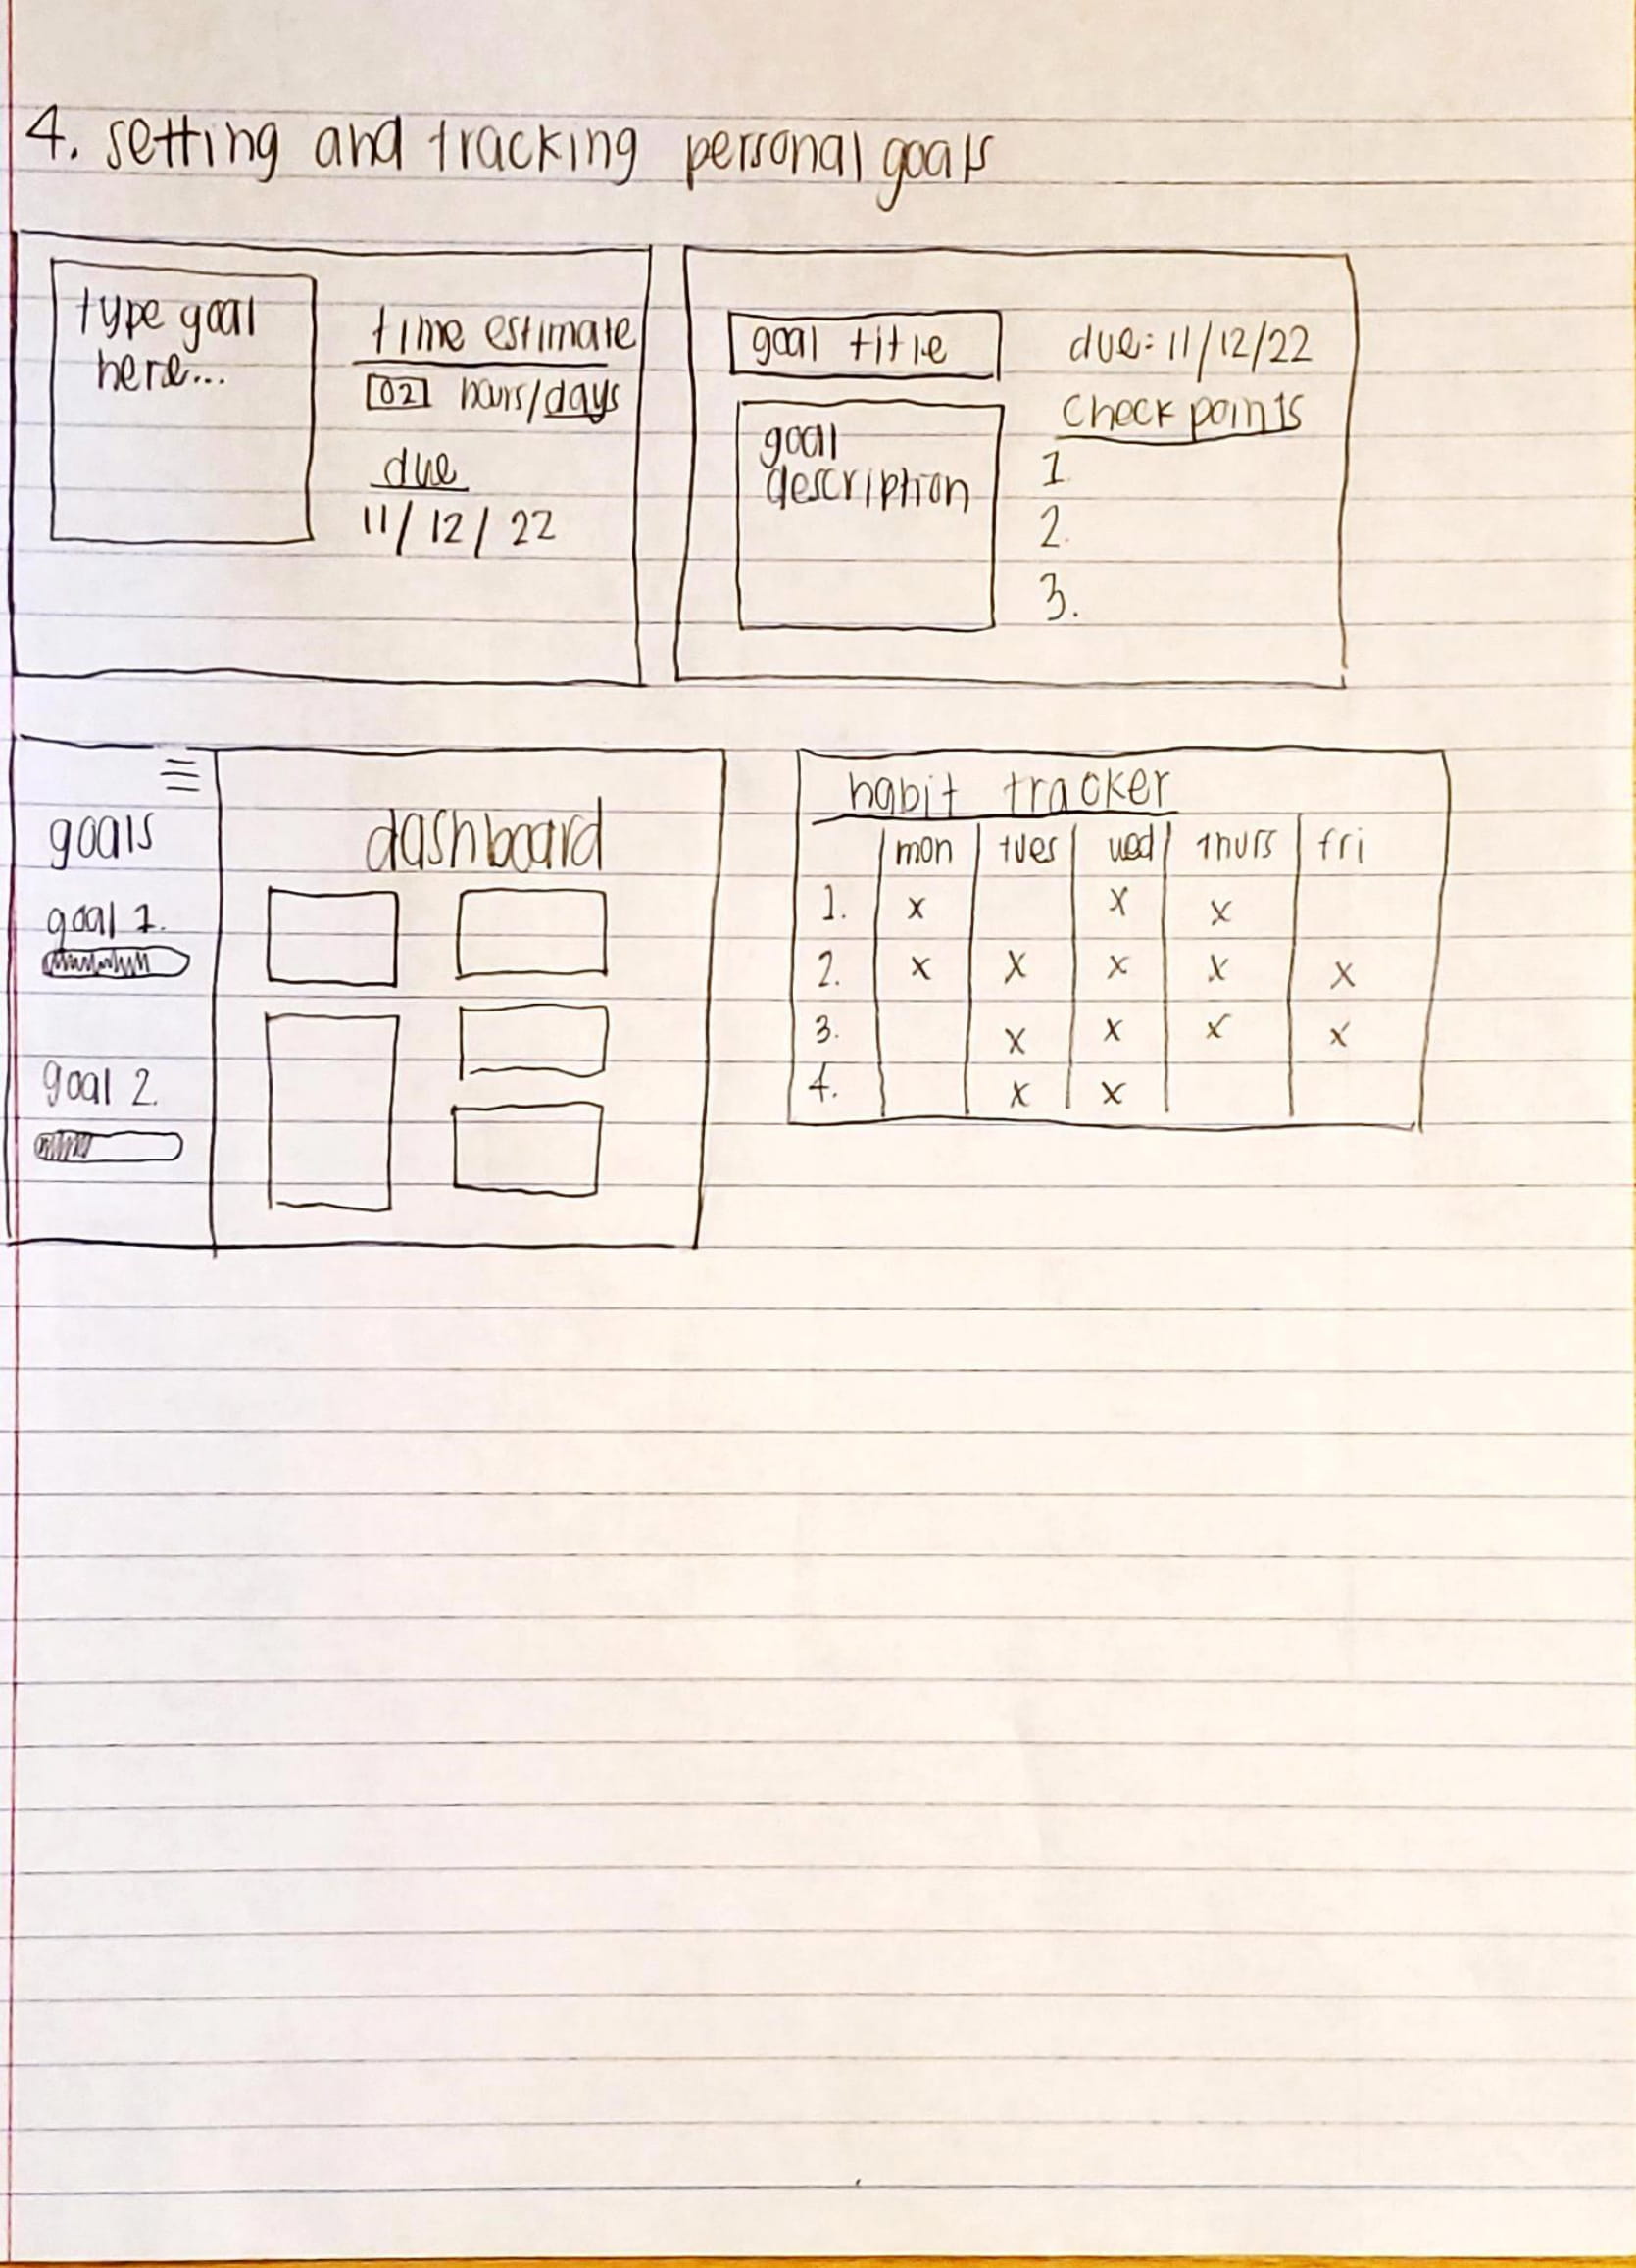 4. setting and tracking personal goals
type goal
here...
time estimate
02 hours/days
due
11/12/22
goal title
goal
description
due: 11/12/22
Checkpoints
1
2.
3.
goals
goal 1.
goal 2.
dashboard
habit tracker
mon tues wed thurs fri
1. x x x
2. x x x x x
3. x x x x
4. x x